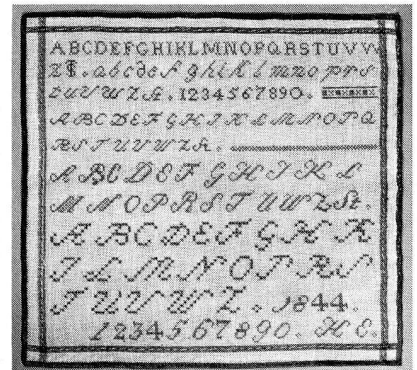 ABCDEFGHIKLMNOPQRSTUVW
Z . abcdef ghikl mno prs
tuvwz . 1234567890.
ABCDEFGHIKLMNOPQ
RSTUVWZ .
ABCDEFGHIKL
MNOPRSTUWZ St.
ABCDEFGHK
ILMNOPRS
TUVWZ . 1844.
1234567890. HE.